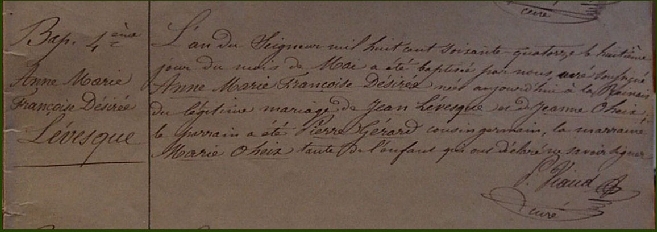 curé
Bap. 4ème
Anne Marie
Françoise Désirée
Lévesque
L'an du Seigneur mil huit cent soixante-quatorze le huitième
jour du mois de Mai a été baptisée par nous, curé soussigné
Anne Marie Françoise Désirée née aujourd'hui à la
du légitime mariage de Jean Lévesque et d Jeanne Oheix;
le parrain a été Pierre Gérard cousin germain, la marraine
Marie Oheix tante de l'enfant qui ont déclaré ne savoir signer
curé